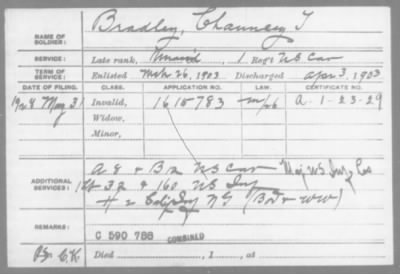 NAME OF SOLDIER: Bradley, Chauncey T
SERVICE: Late rank, Unas'd, 1 Reg't US Cav
TERM OF SERVICE: Enlisted Mch 26, 1903 Discharged Apr 3, 1903
DATE OF FILING. CLASS. APPLICATION NO. LAW. CERTIFICATE NO.
1924 May 31 Invalid, 1615783 A-1-23-29
Widow,
Minor,
ADDITIONAL SERVICES: A 8 & B 12 US Cav
32 & 160 US Inf
H 2 Inf NG (Bor & WW)
REMARKS: C 590 788 COMBINED
Died , 1 , at